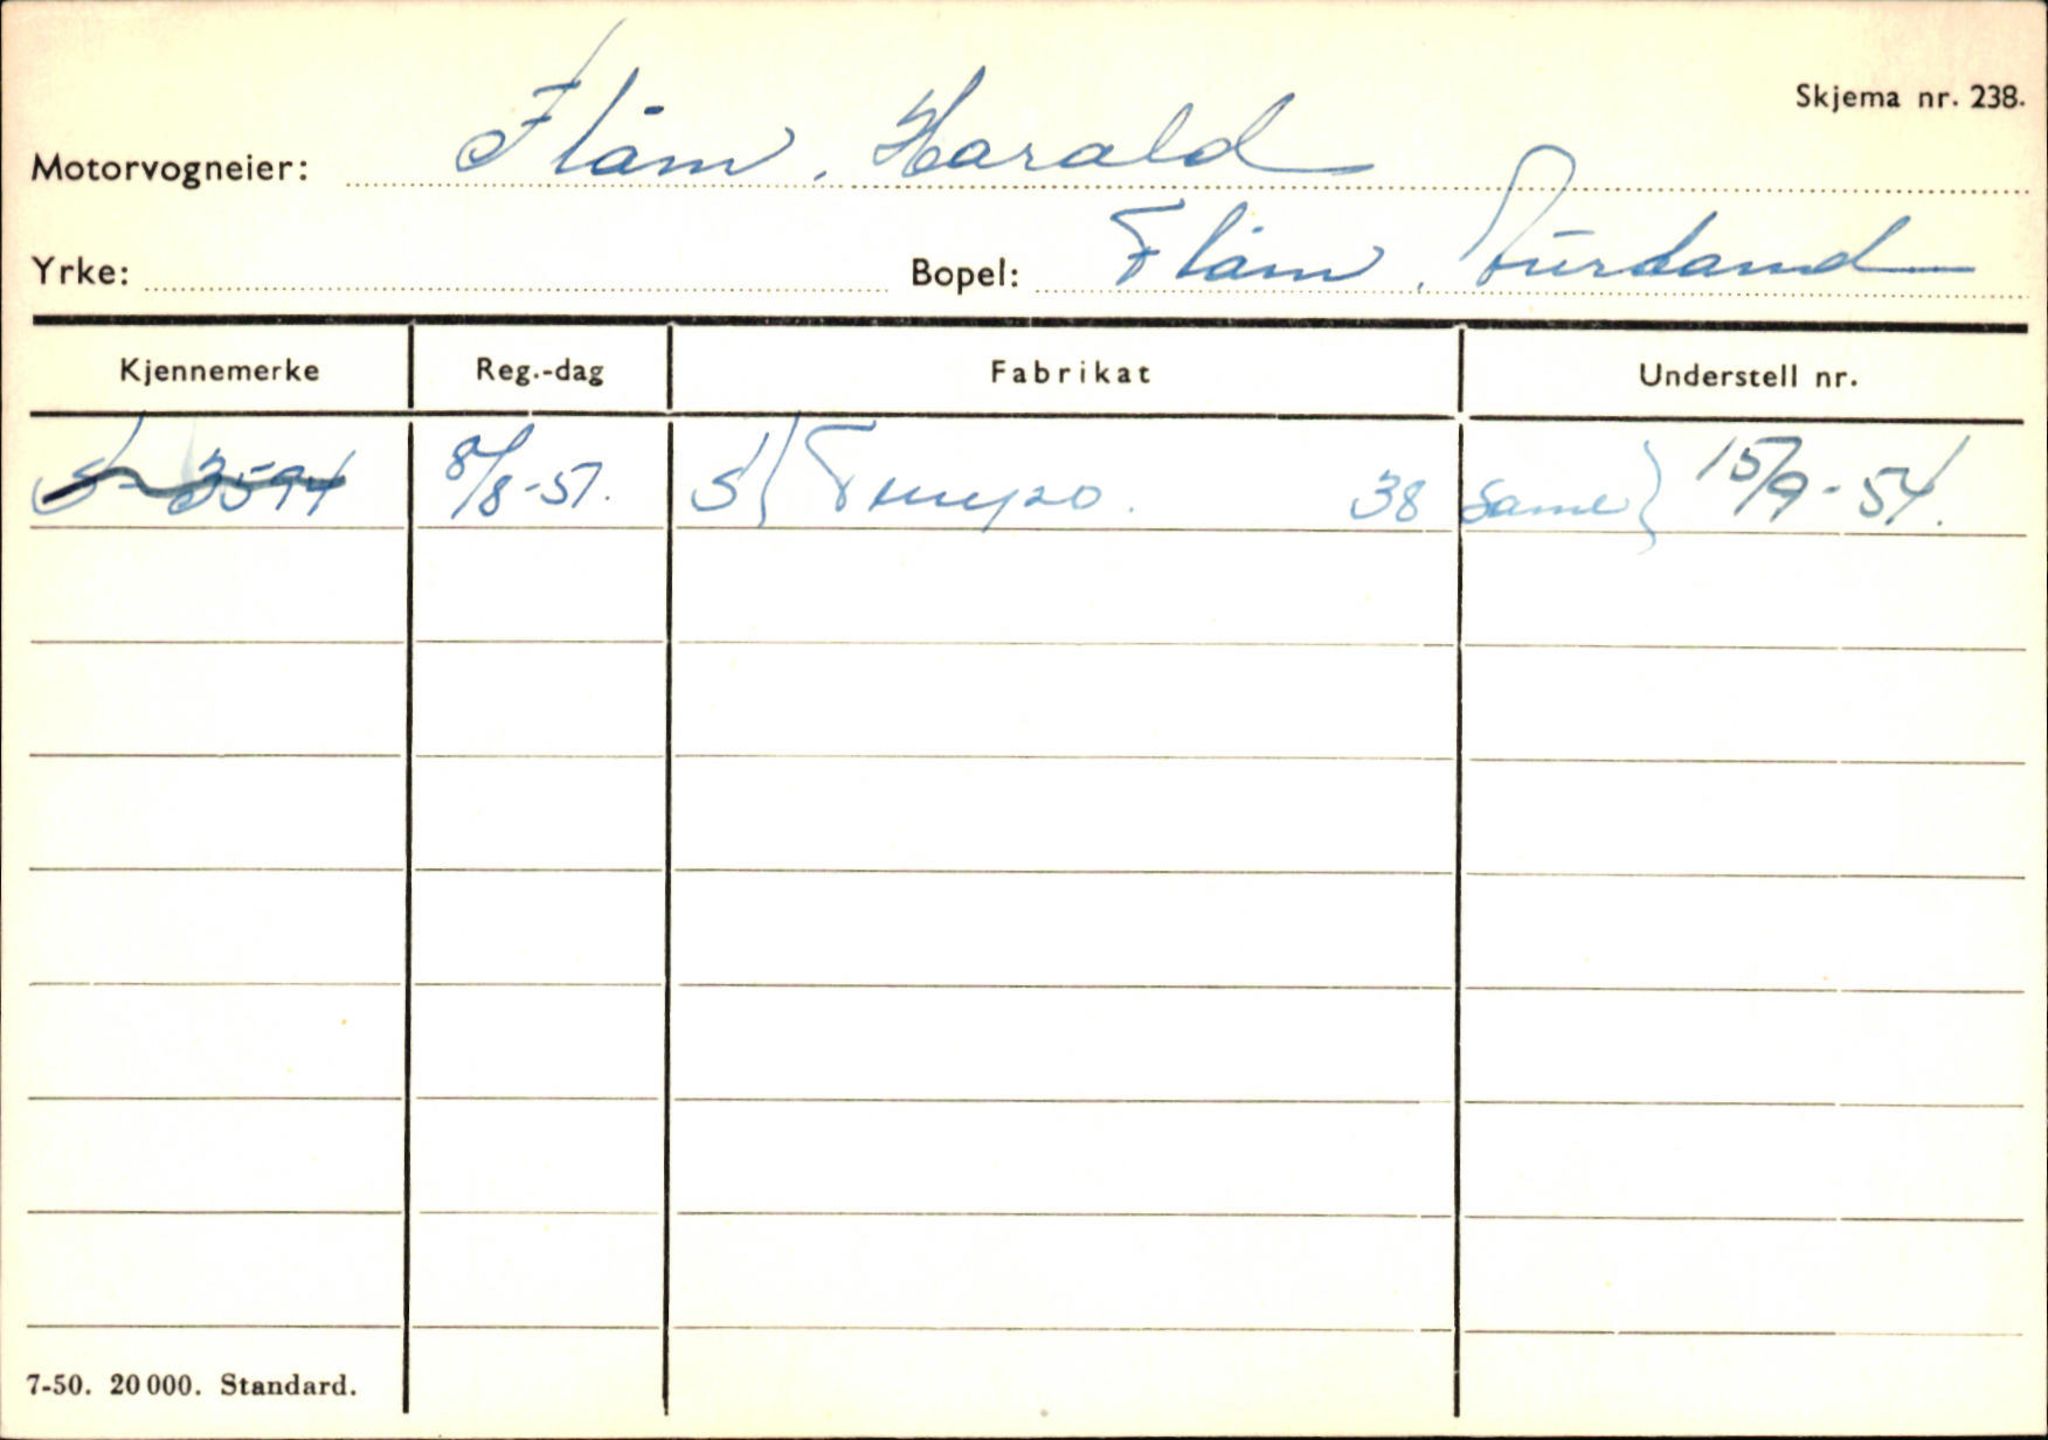 Skjema nr. 238.
Motorvogneier: Flåm, Harald
Yrke: Bopel: Flåm, Aurland
Kjennemerke Reg.-dag Fabrikat Understell nr.
S-3594 8/8-51. S) Tempo. 38 same } 15/9-54.
7-50. 20 000. Standard.